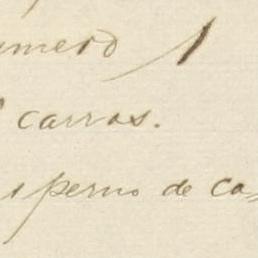 numero 1
carros.
perno de ca-